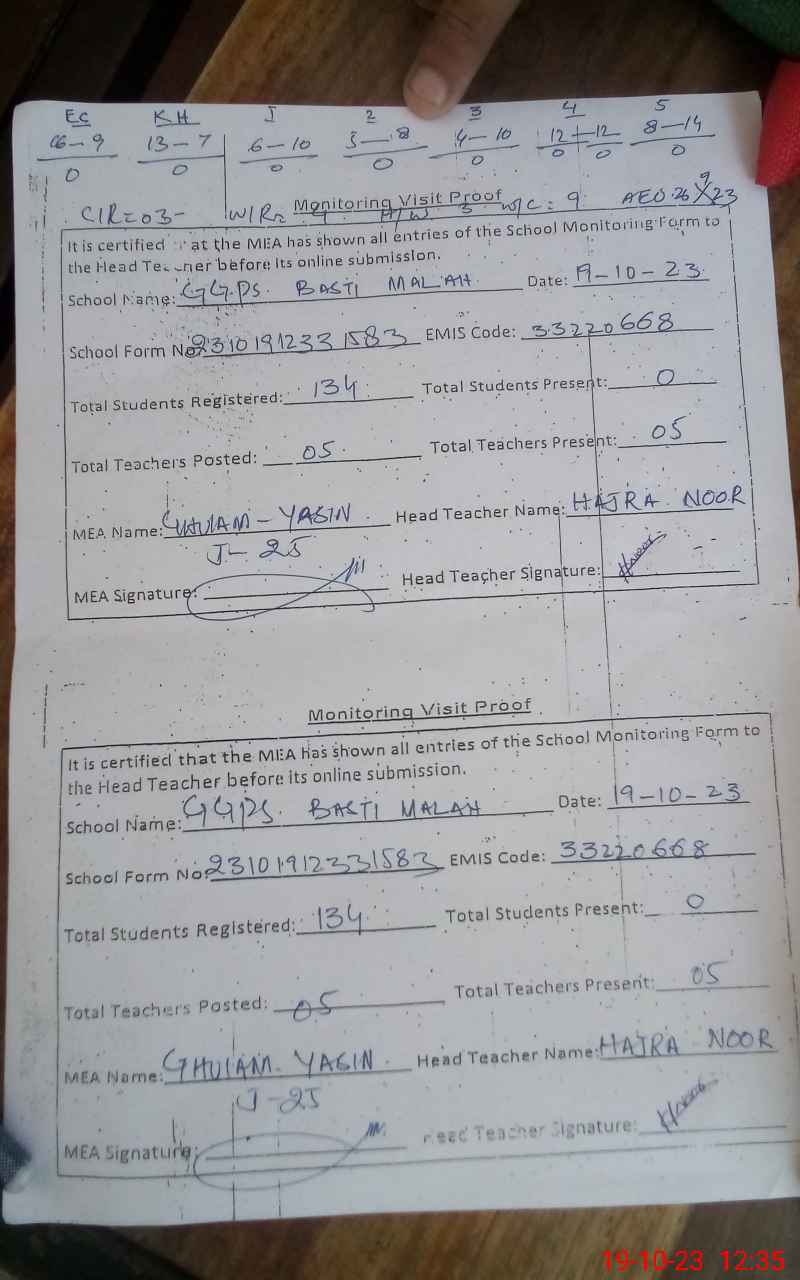 Ec KH I 2 3 4 5
06-9 13-7 6-10 5-8 4-10 12+12 8-14
0 0 0 0 0 0 0 0
Monitoring Visit Proof
C/R=03- W/R= 3 W/C = 9 AEO. 26 9 23
It is certified at the MEA has shown all entries of the School Monitoring Form to
the Head Teacher before its online submission.
School Name: GGPS. BASTI MALAH Date: 19-10-23
School Form No. 2310191233 1583 EMIS Code: 33220668
Total Students Registered: 134 Total Students Present: 0
Total Teachers Posted: 05. Total Teachers Present: 05
MEA Name: GHULAM-YASIN Head Teacher Name: HAJRA NOOR
J-25
MEA Signature: Head Teacher Signature: Hnoor
Monitoring Visit Proof
It is certified that the MEA has shown all entries of the School Monitoring Form to
the Head Teacher before its online submission.
School Name: GGPS. BASTI MALAH Date: 19-10-23
School Form No: 231019123331583 EMIS Code: 33220668
Total Students Registered: 134 Total Students Present: 0
Total Teachers Posted: 05 Total Teachers Present: 05
MEA Name: GHULAM YASIN Head Teacher Name: HAJRA NOOR
J-25
MEA Signature: Head Teacher Signature: Hnoor
19-10-23 12:35